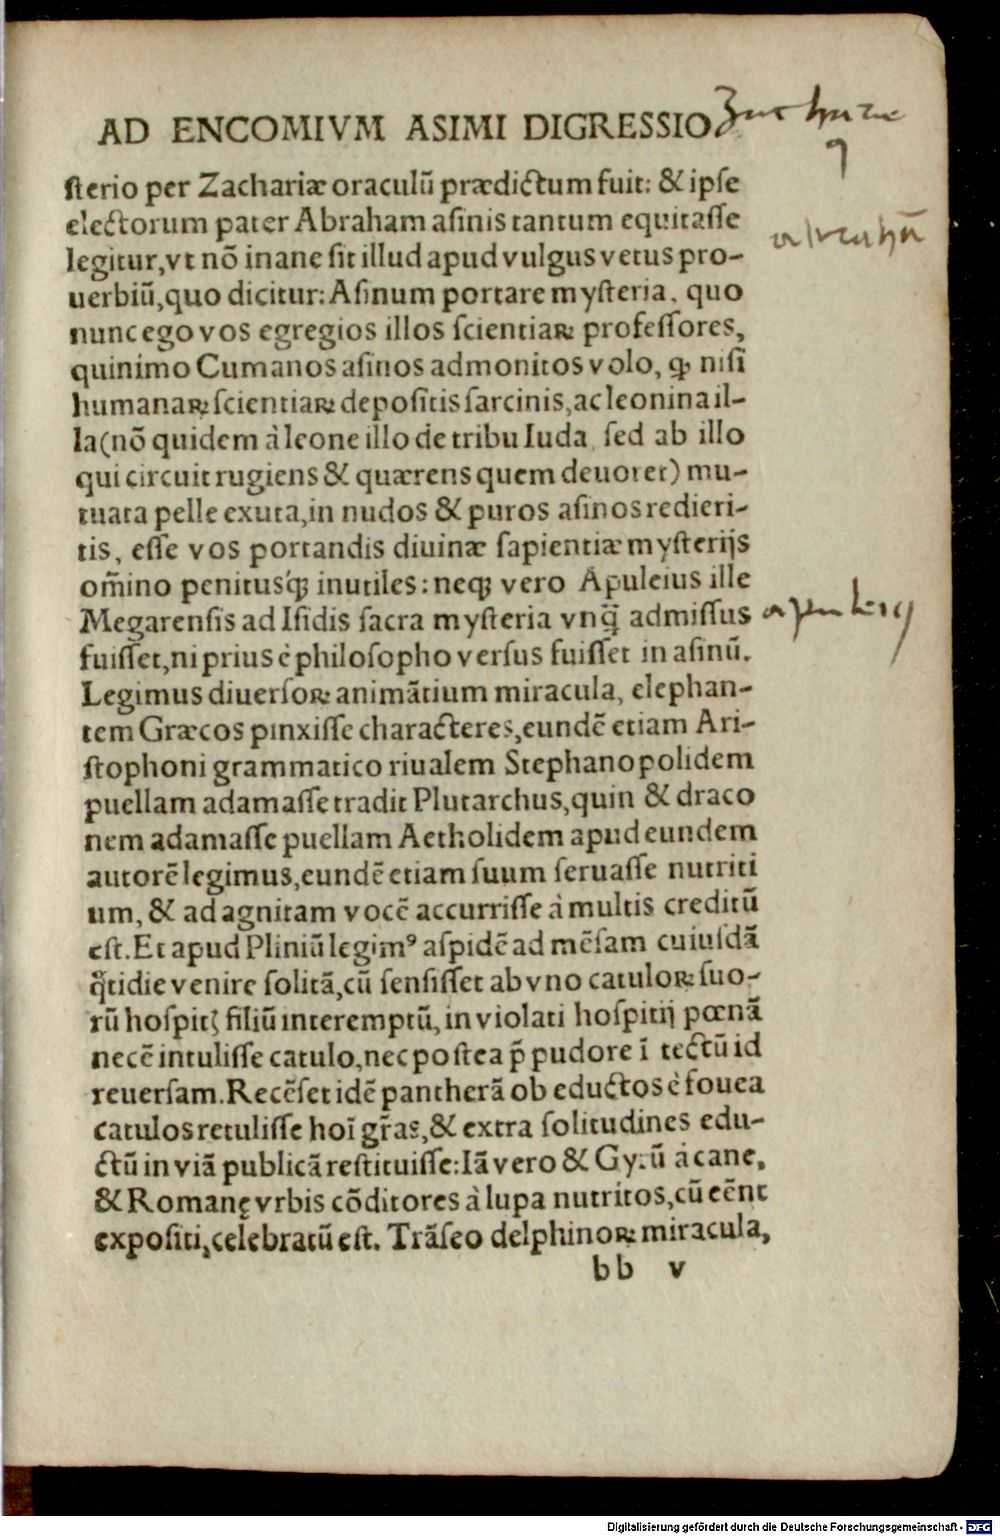 AD ENCOMIVM ASIMI DIGRESSIO.
sterio per Zachariæ oraculũ prædictum fuit: & ipse
electorum pater Abraham asinis tantum equitasse
legitur, vt nõ inane sit illud apud vulgus vetus pro-
uerbiũ, quo dicitur: Asinum portare mysteria. quo
nunc ego vos egregios illos scientiaꝝ professores,
quinimo Cumanos asinos admonitos volo, ꝙ nisi
humanaꝝ scientiaꝝ depositis sarcinis, ac leonina il-
la (nõ quidem à leone illo de tribu Iuda sed ab illo
qui circuit rugiens & quærens quem deuoret) mu-
tuata pelle exuta, in nudos & puros asinos redieri-
tis, esse vos portandis diuinæ sapientiæ mysterijs
om̃ino penitusq́ꝫ inutiles: neqꝫ vero Apuleius ille
Megarensis ad Isidis sacra mysteria vnq̃ admissus
fuisset, ni prius è philosopho versus fuisset in asinũ.
Legimus diuersoꝝ animãtium miracula, elephan-
tem Græcos pinxisse characteres, eundẽ etiam Ari-
stophoni grammatico riualem Stephanopolidem
puellam adamasse tradit Plutarchus, quin & draco
nem adamasse puellam Aetholidem apud eundem
autorẽ legimus, eundẽ etiam suum seruasse nutriti
um, & ad agnitam vocẽ accurrisse à multis creditũ
est. Et apud Pliniũ legimꝰ aspidẽ ad mẽsam cuiusdã
q̃tidie venire solitã, cũ sensisset ab vno catuloꝝ suo-
rũ hospitꝭ filiũ interemptũ, in violati hospitij pœnã
necẽ intulisse catulo, nec postea p̃ pudore ĩ tectũ id
reuersam. Recẽset idẽ pantherã ob eductos è fouea
catulos retulisse hoĩ gr̃as, & extra solitudines edu-
ctũ in viã publicã restituisse: Iã vero & Gyrũ à cane,
& Romanę vrbis cõditores à lupa nutritos, cũ eẽnt
expositi, celebratũ est. Trãseo delphinoꝝ miracula,
bb v
Digitalisierung gefördert durch die Deutsche Forschungsgemeinschaft - DFG